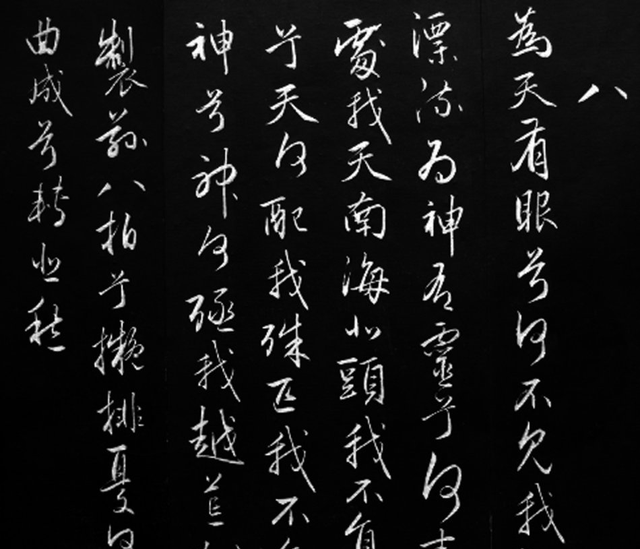 八
為天有眼兮何不見我
漂流為神有靈兮何
處我天南海北頭我不負
兮天何配我殊匹我不
神兮神何殛我越荒
製茲八拍兮擬排憂何
曲成兮轉悲愁